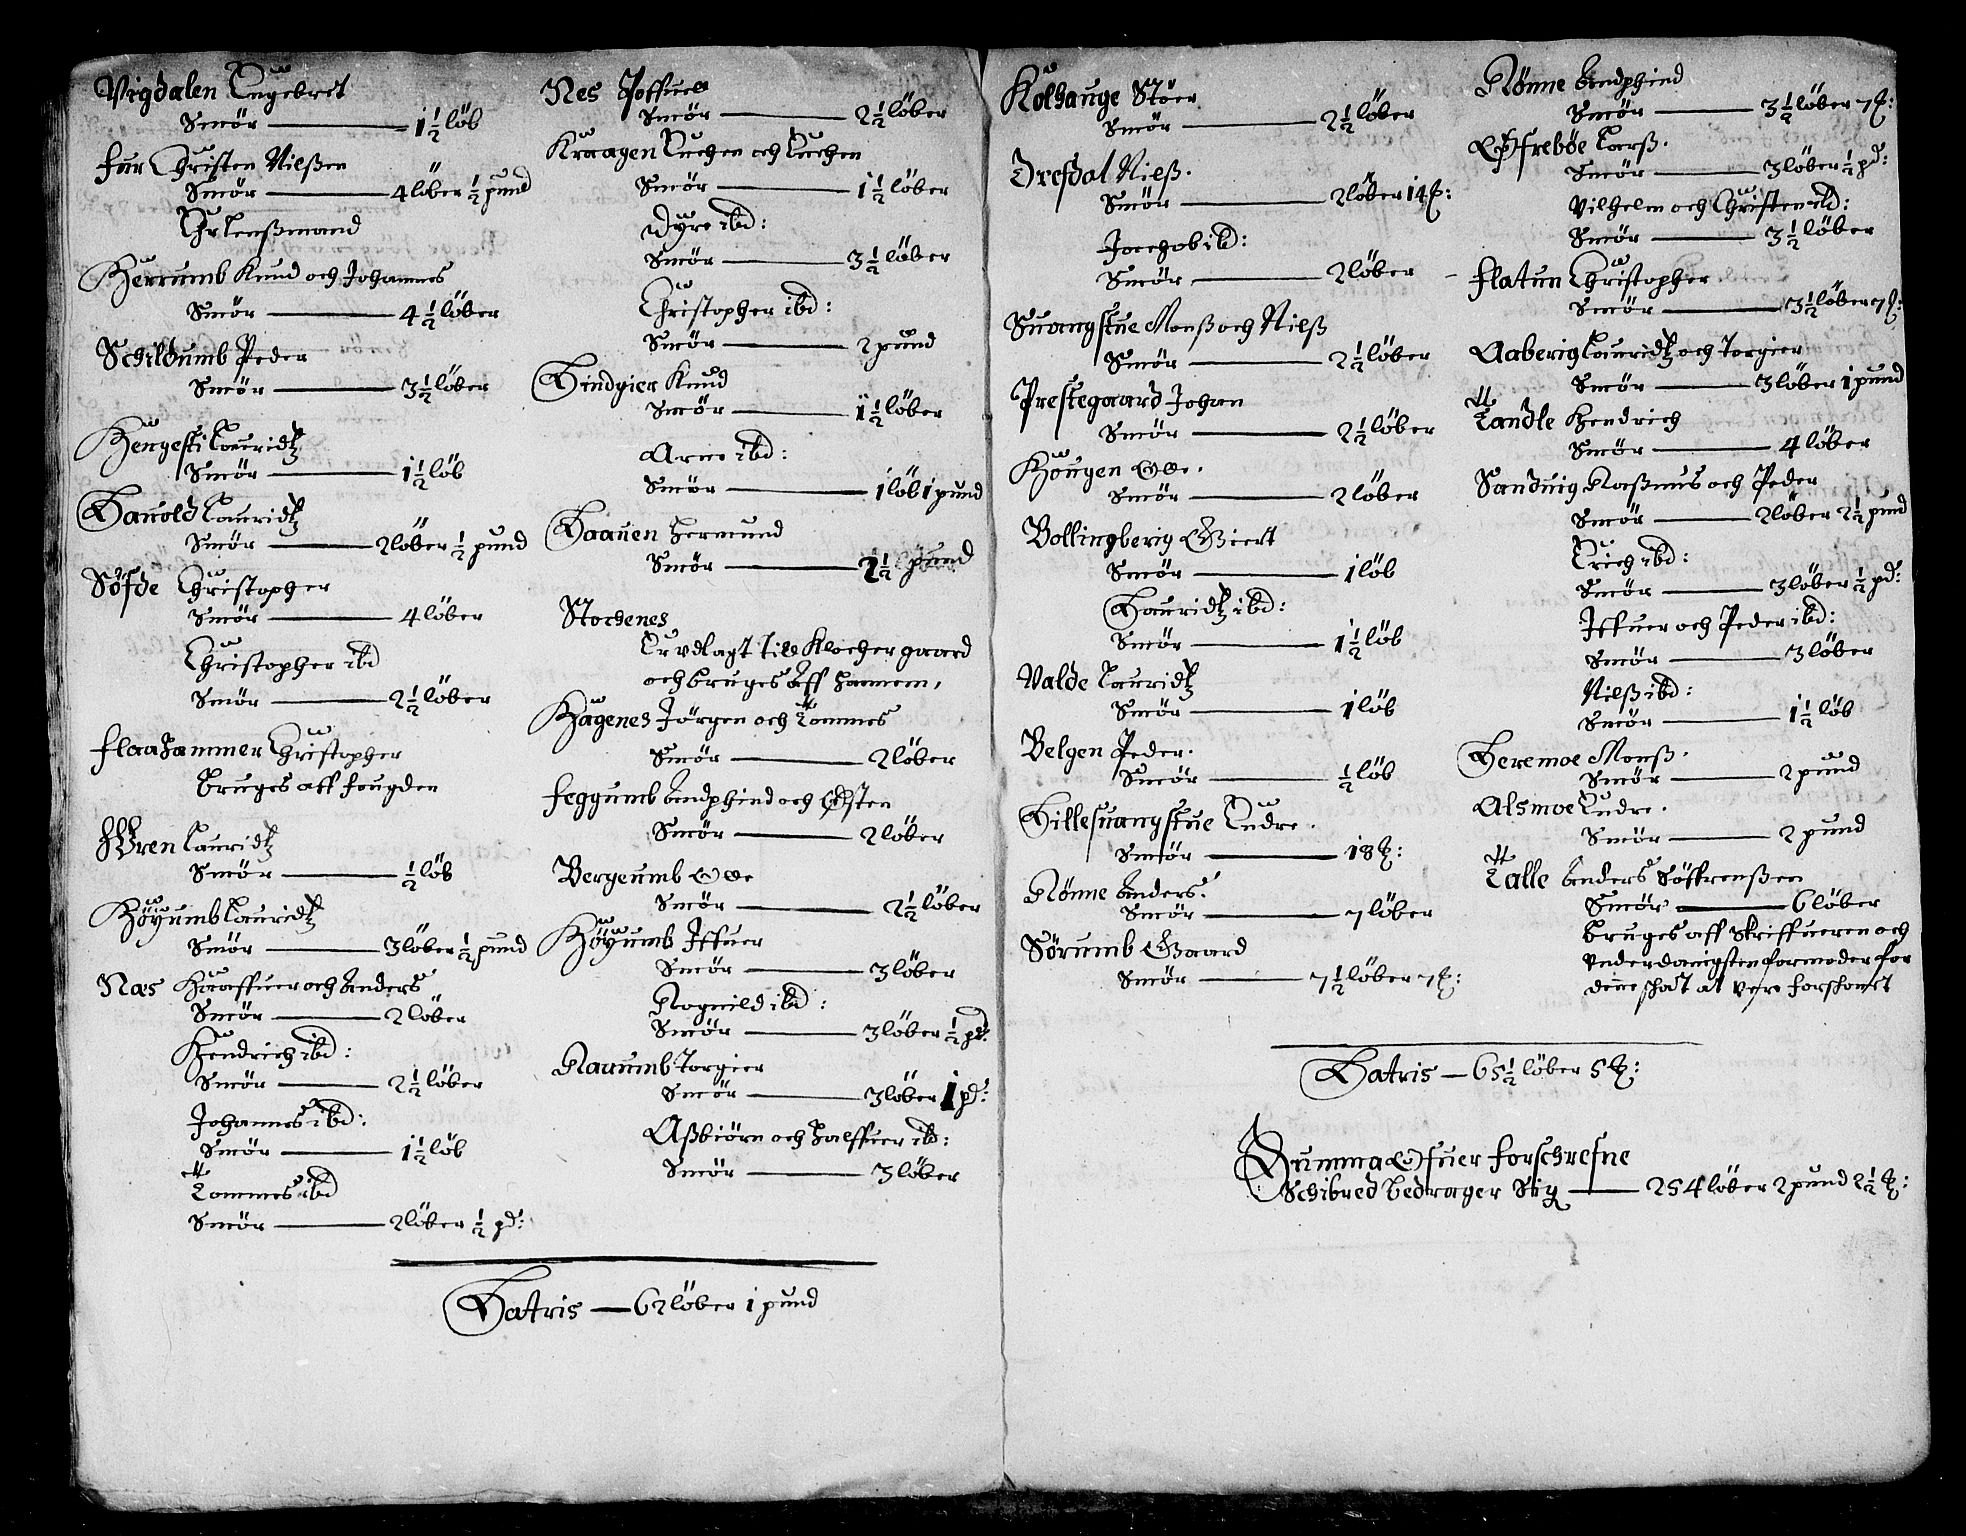 Vigdalen Engebret
Smör — 1½ löb
Fur Christen Nilßen
Smör — 4 löber ½ pund
Er lenßmand
Herrumb Knud och Johannes
Smör — 4½ löber
Schildumb Peder
Smör — 3½ löber
Hengesti Lauridtz
Smör — 1½ löb
Hauold Lauridtz
Smör — 2 löber ½ pund
Söfde Christopher
Smör — 4 löber
Christopher ibd
Smör — 2½ löber
Flaahammer Christopher
bruges aff fougden
Lauridtz
Smör — ½ löb
Höyumb Lauridtz
Smör — 3 löber ½ pund
Næs Haaffuer och Anders
Smör — 2 löber
Hendrich ibd:
Smör — 2½ löber
Johannes ibd:
Smör — 1½ löb
Tommes ibd
Smör — 2 löber ½ pd:
Nes Joffuer
Smör — 2½ löber
Kraagen Euchen och Euchen
Smör — 1½ löber
Dyre ibd:
Smör — 3½ löber
Christopher ibd:
Smör — 2 pund
Lindgier Knud
Smör — 1½ löber
Arne ibd:
Smör — 1 löb 1 pund
Haauen Hermund
Smör — 2½ pund
Stochenes
Er vdlagt till Klocher gaard
och bruges aff hannem,
Hagenes Jörgen och Tommes
Smör — 2 löber
Feggumb Endphind och Östen
Smör — 2 löber
Bergeumb Olle
Smör — 2½ löber
Höyumb Iffuer
Smör — 3 löber
Rognild ibd:
Smör — 3 löber ½ pd:
Nauumb Torgier
Smör — 3 löber 1 pd:
Aßbiörn och Halffuer ibd:
Smör — 3 löber
Latris — 62 löber 1 pund
Kolhauge Stöer
Smör — 2½ löber
Drefdal Nilß.
Smör — 2 löber 14 ℔:
Jacchob ibd:
Smör — 2 löber
Suangstue Monß och Nilß
Smör — 2½ löber
Prestegaard Johan
Smör — 2½ löber
Höugen Olle.
Smör — 2 löber
Bollingberig Giert
Smör — 1 löb
Lauridtz ibd:
Smör — 1½ löb
Valde Lauridtz
Smör — 1 löb
Belgen Peder.
Smör — ½ löb
Lillesuangstue Endre.
Smör — 18 ℔:
Nönne Anders.
Smör — 7 löber
Sörumb Gaard
Smör — 7½ löber 7 ℔:
Nönne Endphind
Smör — 3½ löber 7 ℔:
Öffrebøe Larß.
Smör — 3 löber ½ pd:
Vilhelm och Christen ibd:
Smör — 3½ löber
Flatun Christopher
Smör — 3½ löber 7 ℔:
Aaberig Lauridtz och Torgier
Smör — 3 löber 1 pund
Tandle Hendrich
Smör — 4 löber
Sanduig Raßmus och Peder
Smör — 2 löber 2½ pund
Erich ibd:
Smör — 3 löber ½ pd:
Iffuer och Peder ibd:
Smör — 3 löber
Nilß ibd:
Smör — 1½ löb
Heremoe Monß.
Smör — 2 pund
Alsmoe Endre.
Smör — 2 pund
Talle Anders Söffrenßen
Smör — 6 löber
bruges aff Skriffueren och
vnderdanigsten formoder for
denne schat at vere forskonet
Latris — 65½ löber 5 ℔:
Summa Ofuer forschrefne
Schibred bedrager Sig — 254 löber 2 pund 2½ ℔: